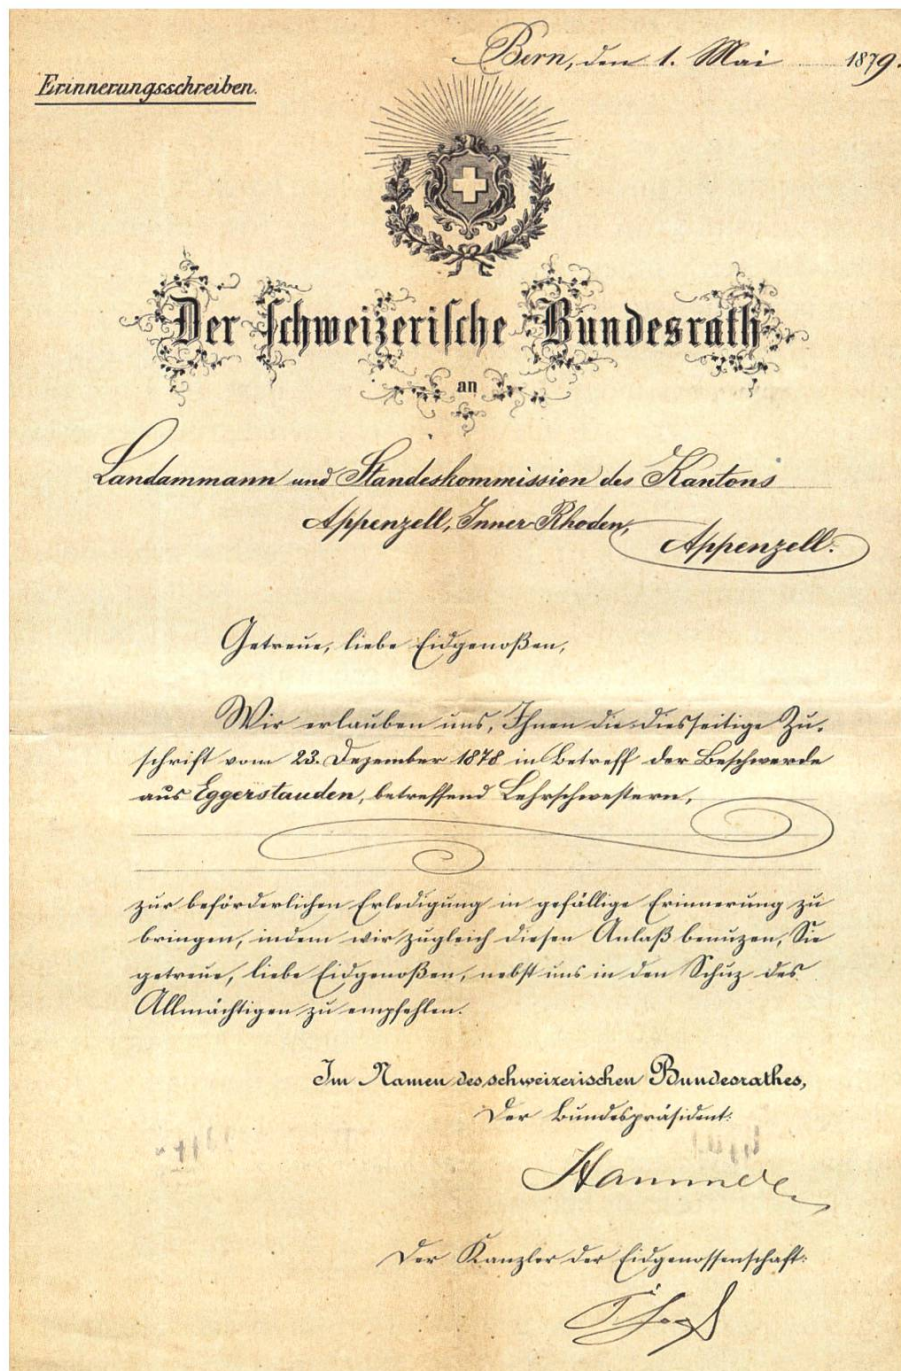 Bern, den 1. Mai 1879.
Erinnerungsschreiben.
Der Schweizerische Bundesrath
an
Landammann und Standeskommission des Kantons
Appenzell, Inner-Rhoden,
Appenzell.
Getreue, liebe Eidgenoßen,
Wir erlauben uns, Ihnen die diesseitige Zu-
schrift vom 23. Dezember 1878 in Betreff der Beschwerde
aus Eggerstanden, betreffend Lehrschwestern,
zur beförderlichen Erledigung in gefällige Erinnerung zu
bringen, indem wir zugleich diesen Anlaß benuzen, Sie
getreue, liebe Eidgenoßen, nebst uns in den Schuz des
Allmächtigen zu empfehlen.
Im Namen des schweizerischen Bundesrathes,
Der Bundespräsident:
Hammer
Der Kanzler der Eidgenossenschaft: